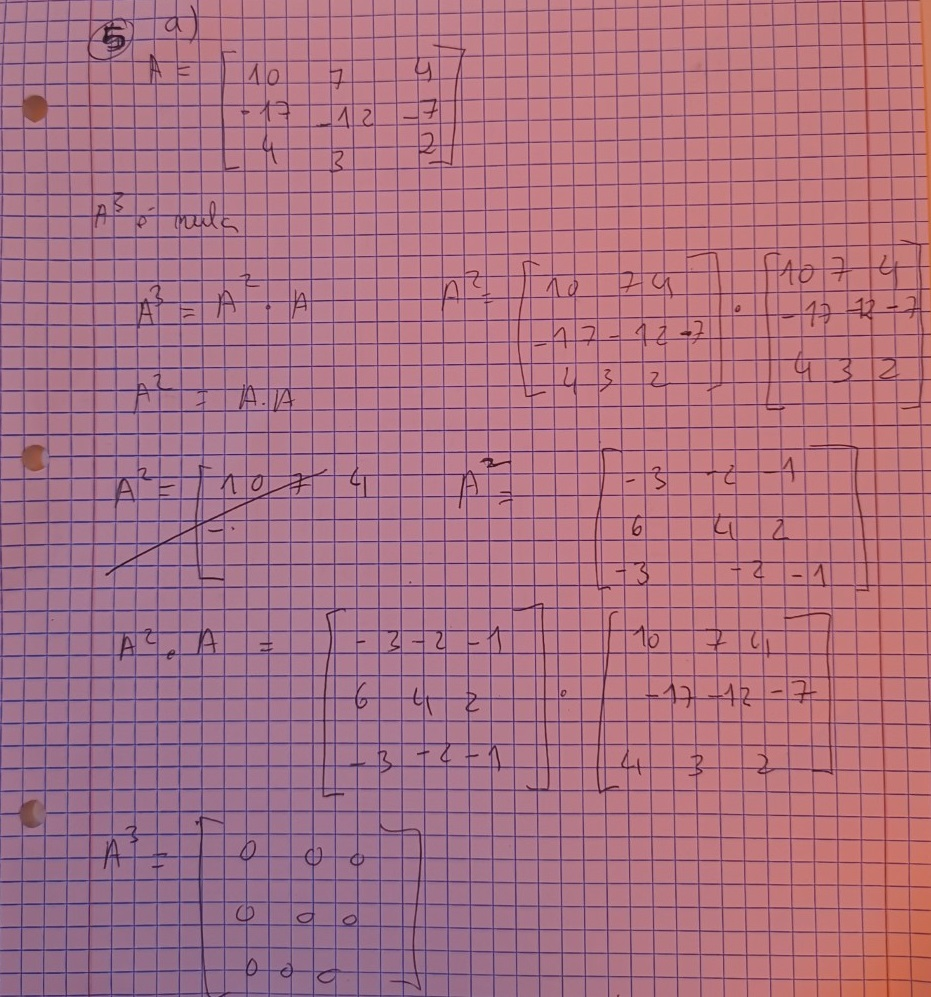 5 a)
A = [ 10 7 4
-17 -12 -7
4 3 2 ]
A³ é nula
A³ = A² . A
A² = [ 10 7 4
-17 -12 -7
4 3 2 ] . [ 10 7 4
-17 -12 -7
4 3 2 ]
A² = A.A
A² = [ 10 7 4
-.
A² = [ -3 -2 -1
6 4 2
-3 -2 -1 ]
A² . A = [ -3 -2 -1
6 4 2
-3 -2 -1 ] . [ 10 7 4
-17 -12 -7
4 3 2 ]
A³ = [ 0 0 0
0 0 0
0 0 0 ]